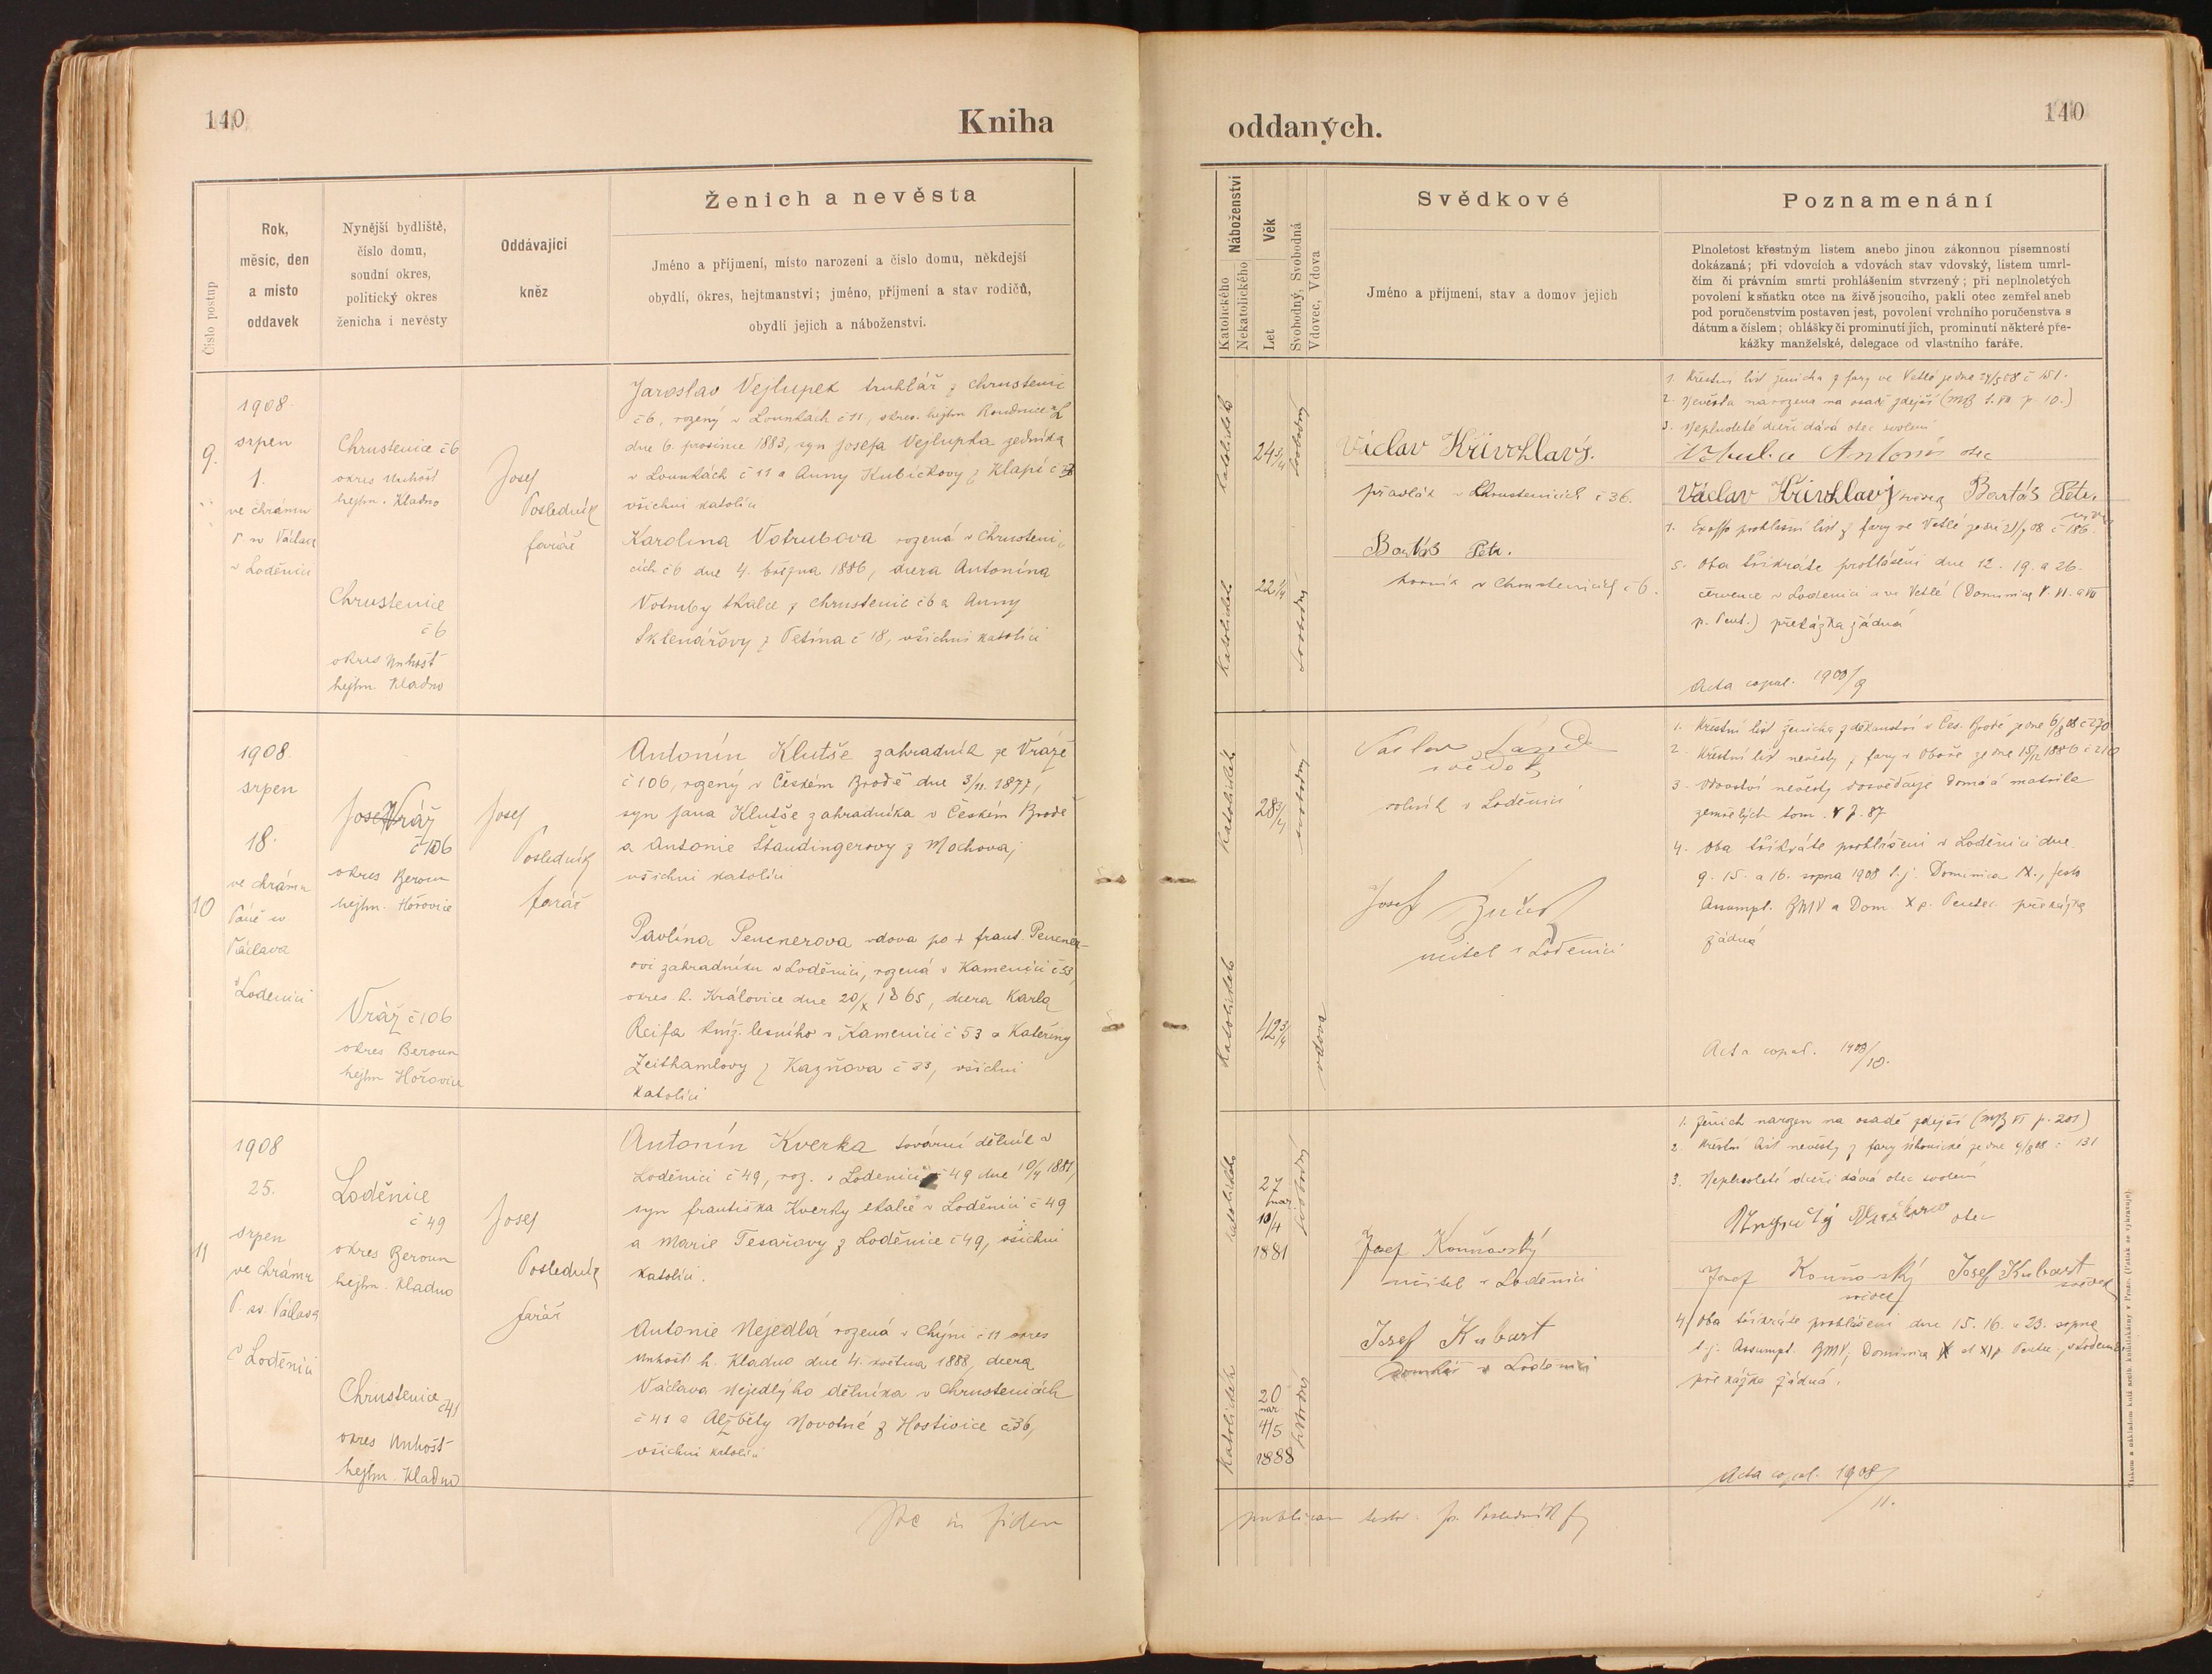 140
Kniha
oddaných.
140
Číslo postup
Rok,
měsíc, den
a místo
oddavek
Nynější bydliště,
číslo domu,
soudní okres,
politický okres
ženicha i nevěsty
Oddávající
kněz
Ženich a nevěsta
Jméno a příjmení, místo narození a číslo domu, někdejší
obydlí, okres, hejtmanství; jméno, příjmení a stav rodičů,
obydlí jejich a náboženství.
Náboženství
Katolického
Nekatolického
Věk
Let
Svobodný, Svobodná
Vdovec, Vdova
Svědkové
Jméno a příjmení, stav a domov jejich
Poznamenání
Plnoletost křestným listem anebo jinou zákonnou písemností
dokázaná; při vdovcích a vdovách stav vdovský, listem umrl-
čím či právním smrti prohlášením stvrzený; při neplnoletých
povolení k sňatku otce na živě jsoucího, pakli otec zemřel aneb
pod poručenstvím postaven jest, povolení vrchního poručenstva s
dátum a číslem; ohlášky či prominutí jich, prominutí některé pře-
kážky manželské, delegace od vlastního faráře.
9.
1908.
srpen
1.
ve chrámu
P. sv Václava
v Loděnici
Chrustenice č 6
okres Unhošť
hejtm. Kladno
Chrustenice
č 6
okres Unhošť
hejtm. Kladno
Josef
Posledník
farář
Jaroslav Vejlupek truhlář z Chrustenic
č 6, rozený v Lounkách č 11, okres. hejtm Roudnice n/L
dne 6. prosince 1883, syn Josefa Vejlupka zedníka
v Lounkách č 11 a Anny Kubíčkovy z Klapí č
všichni katolíci
Karolina Votrubova rozená v Chrusteni-
cích č 6 dne 4. března 1886, dcera Antonína
Votruby tkalce z Chrustenic č 6 a Anny
Sklenářovy z Tetína č 18, všichni katolíci
katolické
24 3/4
svobodný
katolické
22 1/4
svobodná
Václav Křivohlavý.
přadlák v Chrustenicích č 36.
Bartoš Petr.
horník v Chrustenicích č 6.
1. Křestní list ženicha z fary ve Vetlé ze dne 24/5 08 č 151.
2. Nevěsta narozena na osadě zdejší (MB t. VII p. 10.)
3. Neplnoleté dceři dává otec svolení
Votruba Antonín otec
Václav Křivohlavý svědek Bartoš Petr.
svědek
4. prohlašní list z fary ve Vetlé ze dne 27/7 08 č 186.
5. Oba třikráte prohlášeni dne 12. 19. a 26.
července v Loděnici a ve Vetlé (Dominica V. VI. a VII
p. Pent.) překážka žádná
Acta copul. 1908/9
10
1908.
srpen
18.
ve chrámu
Páně sv.
Václava
v Lodenici
Vráž
č 106
okres Beroun
hejtm. Hořovice
Vráž č 106
okres Beroun
hejtm Hořovice
Josef
Posledník
farář
Antonín Klutše zahradník ze Vráže
č 106, rozený v Českém Brodě dne 3/11. 1877,
syn Jana Klutše zahradníka v Českém Brodě
a Antonie Štandingerovy z Mochova;
všichni katolíci
Pavlína Pencnerova vdova po + Frant. Pencner-
ovi zahradníku v Loděnici, rozená v Kamenici č 53,
okres. h. Královice dne 20/X 1865, dcera Karla
Reifa kníž. lesního v Kamenici č 53 a Kateřiny
Zeithamlovy z Kazňova č 33, všichni
katolíci
katolické
28 3/4
svobodný
katolické
42 3/4
vdova
Václav
svědek
rolník v Loděnici
Josef
učitel v Loděnici
1. Křestní list ženicha z děkanství v Čes. Brodě ze dne 6/8 08 č 270
2. Křestní list nevěsty z fary v Oboře ze dne 15/12 1886 č 210
3. Vdovství nevěsty dosvědčuje domácí matrika
zemřelých tom. V p. 87
4. Oba třikráte prohlášeni v Loděnici dne
9. 15. a 16. srpna 1908 t. j. Dominica IX., festo
Assumpt. BMV a Dom. X p. Pentec. překážka
žádná
Acta copul. 1908/10.
11
1908
25.
srpen
ve chrámu
P. sv. Václava
v Loděnici
Loděnice
č 49
okres Beroun
hejtm. Kladno
Chrustenice
č 41
okres Unhošť
hejtm. Kladno
Josef
Posledník
farář
Antonín Kverka tovární dělník v
Loděnici č 49, roz. v Lodenici č 49 dne 10/4 1881,
syn Františka Kverky tkalce v Loděnici č 49
a Marie Tesařovy z Loděnice č 49, všichni
katolíci.
Antonie Nejedlá rozená v Chýni č 11 okres
Unhošť h. Kladno dne 4. května 1888, dcera
Václava Nejedlýho dělníka v Chrustenicách
č 41 a Alžběty Novotné z Hostivice č 36,
všichni katolíci
katolické
27
nar.
10/4
1881
svobodný
katolické
20
nar.
4/5
1888
svobodná
Josef Kouňovský
učitel v Loděnici
Josef Kubart
domkář v Lodenici
1. Ženich narozen na osadě zdejší (MB VI p. 201)
2. Křestní list nevěsty z fary ze dne 9/8 08 č 131
3. Neplnoleté dceři dává otec svolení
otec
Josef Kouňovský Josef Kubart
svědek svědek
4/ Oba třikráte prohlášeni dne 15. 16. a 23. srpna
t. j. Assumpt. BMV, Dominica X et XI p Pentec. v Lodenici
překážka žádná.
Acta copul. 1908/11.
Hoc in fidem
publicam testor: Jos. Posledník f